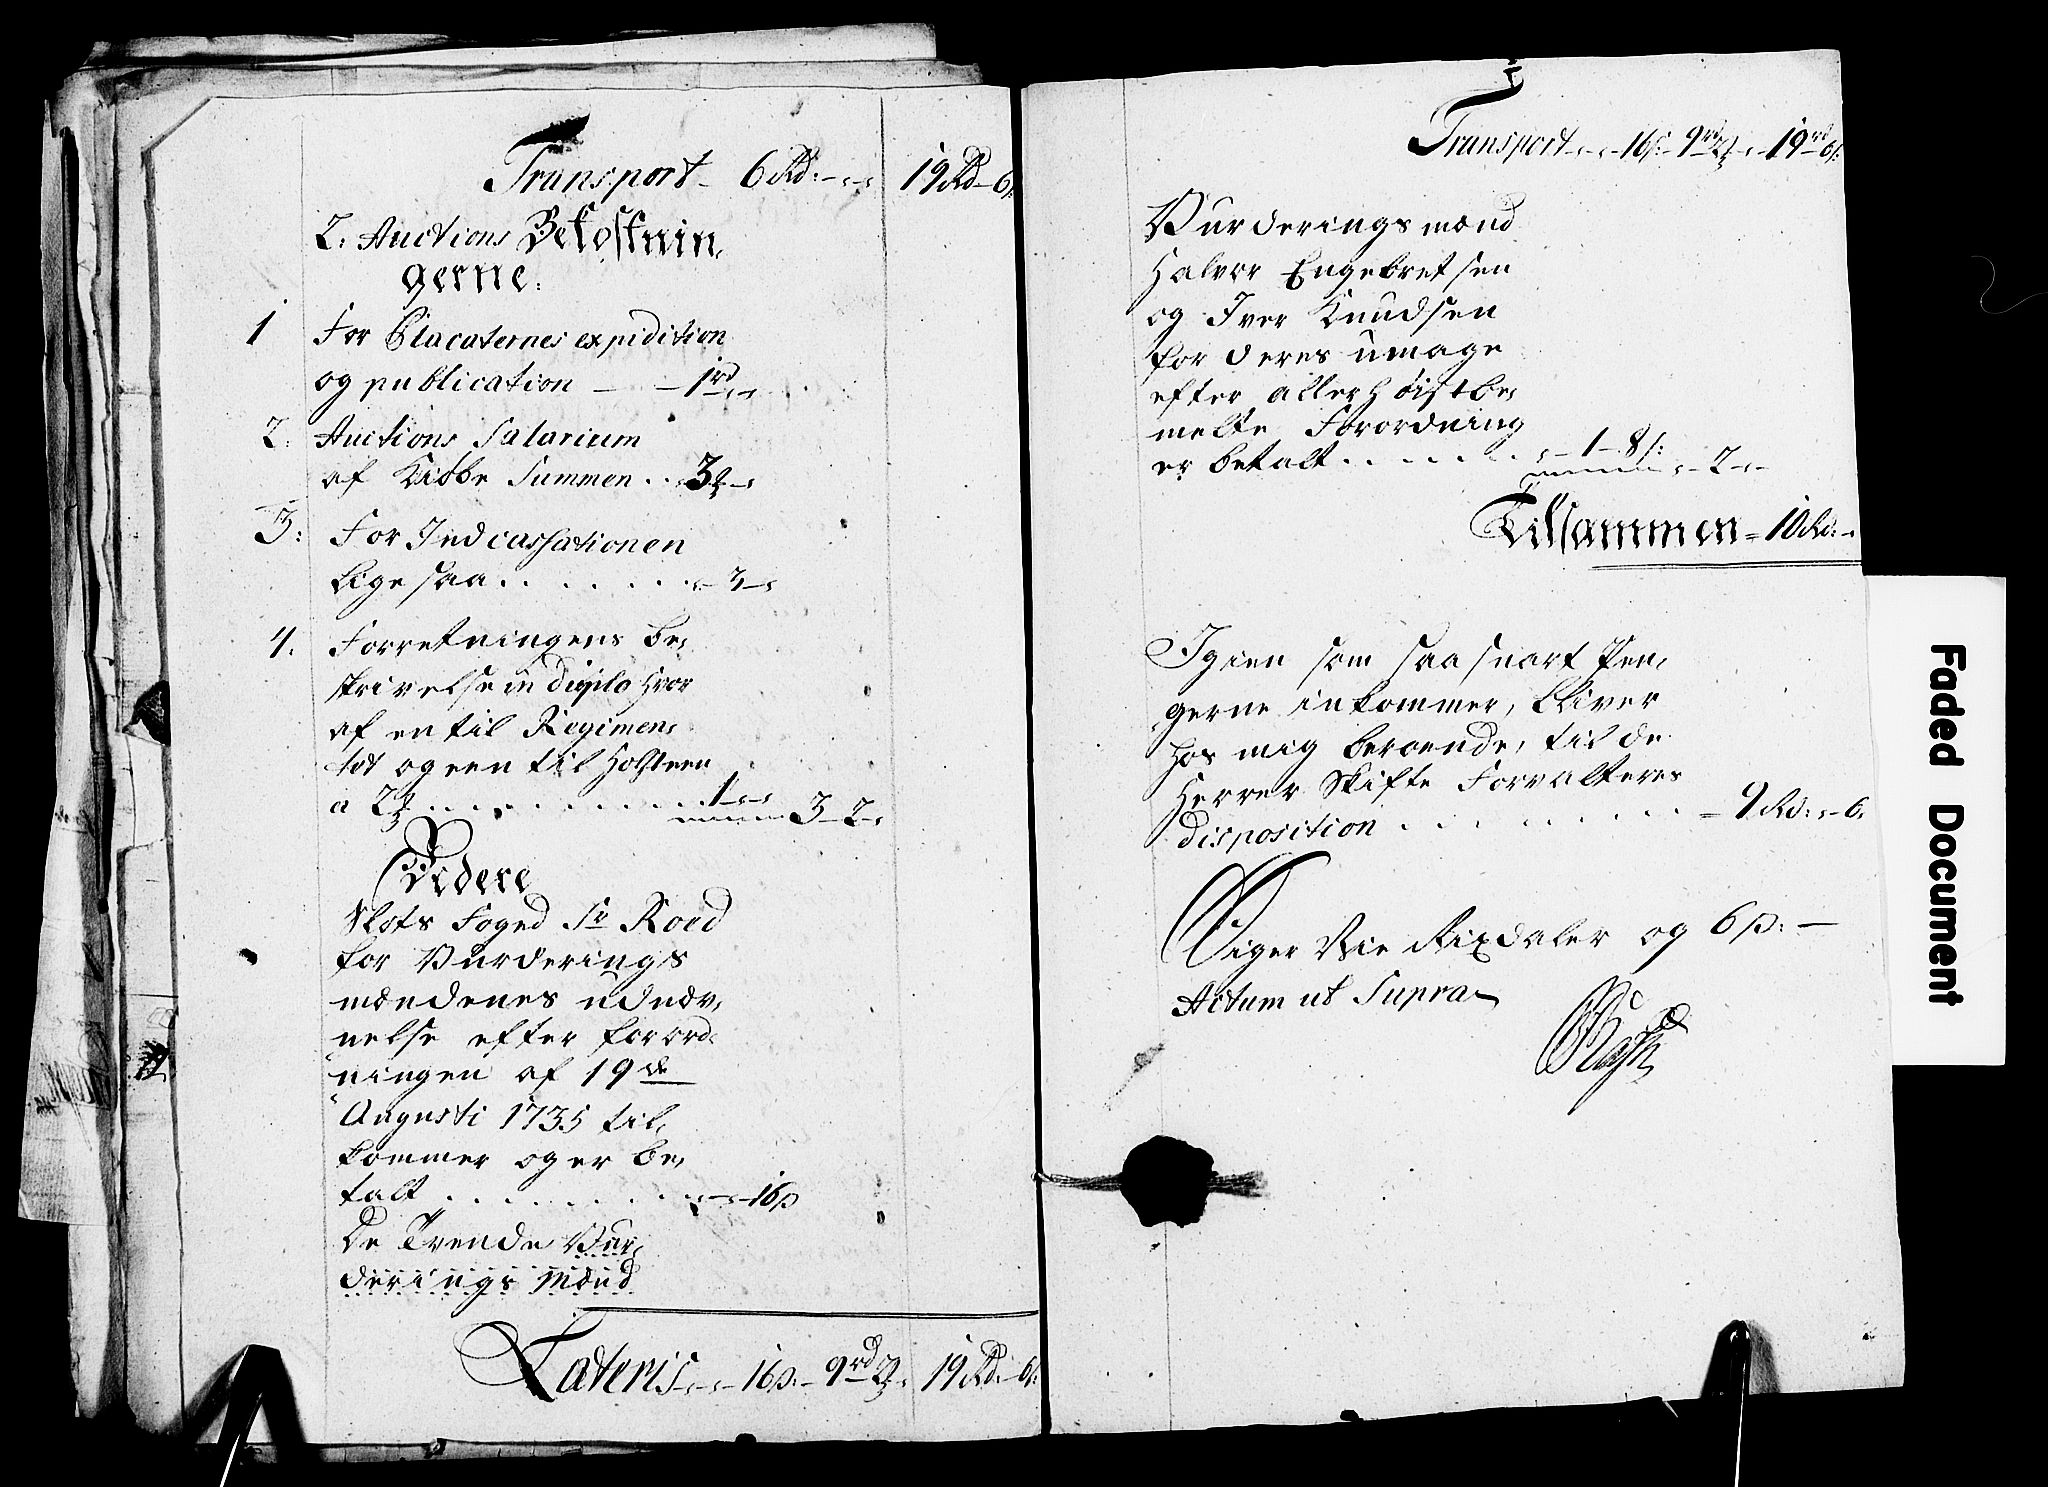 Transport 6 Rd: - 19 Rd - 6 s:
2: Auctions Bekostnin,
gerne:
1 For Placaternes expidition
og publication - - 1 rd - -
2. Auctions Salarium
af Kiøbe Summen . . 3 -
3: For Indcassationen
lige saa . . . . . . . - 3 -
4. Forretningens be,
skrivelse in duplo hvor
af en til Regimen,
tet og een til Holsteen
a 2 . . . . . . . . . 1 - - 3 - 2 -
Videre
Slots Foged Sr Roed
for Vurderings
mændenes udnæv,
nelse efter forord,
ningen af 19de
Augusti 1735 til,
kommer og er be,
talt . . . . . . . . - - 16 s
De Tvende Vur,
derings Mænd
Lateris - - 16 s: - 9 rd 2 - 19 Rd - 6 s:
Transport - - 16 s: 9 rd 2 - 19 rd 6 s:
Vurderings mænd
Halvor Engebretsen
og Iver Knudsen
for deres umage
efter allerhøistbe,
melte Forordning
er betalt . . . . . . - 1 - 8 s: - 2 - -
Tilsammen = 10 Rd: -
Igien som saa snart Pen,
gerne inkommer, bliver
hos mig beroende, til de
Herrer Skifte Forvalteres
disposition . . . . . . . . = 9 Rd: - 6.
Siger Nie Rixdaler og 6 s: -
Actum ut Supra
Faded Document